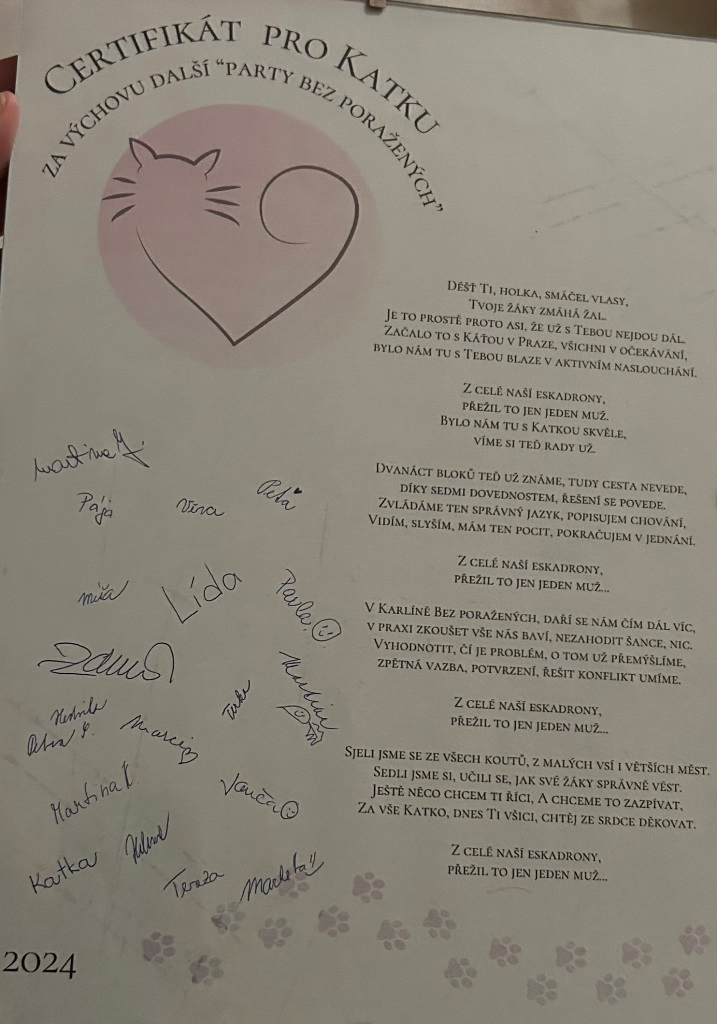 CERTIFIKÁT PRO KATKU
ZA VÝCHOVU DALŠÍ “PARTY BEZ PORAŽENÝCH”
DÉŠŤ TI, HOLKA, SMÁČEL VLASY,
TVOJE ŽÁKY ZMÁHÁ ŽAL.
JE TO PROSTĚ PROTO ASI, ŽE UŽ S TEBOU NEJDOU DÁL.
ZAČALO TO S KÁŤOU V PRAZE, VŠICHNI V OČEKÁVÁNÍ,
BYLO NÁM TU S TEBOU BLAZE V AKTIVNÍM NASLOUCHÁNÍ.
Z CELÉ NAŠÍ ESKADRONY,
PŘEŽIL TO JEN JEDEN MUŽ.
BYLO NÁM TU S KATKOU SKVĚLE,
VÍME SI TEĎ RADY UŽ.
DVANÁCT BLOKŮ TEĎ UŽ ZNÁME, TUDY CESTA NEVEDE,
DÍKY SEDMI DOVEDNOSTEM, ŘEŠENÍ SE POVEDE.
ZVLÁDÁME TEN SPRÁVNÝ JAZYK, POPISUJEM CHOVÁNÍ,
VIDÍM, SLYŠÍM, MÁM TEN POCIT, POKRAČUJEM V JEDNÁNÍ.
Z CELÉ NAŠÍ ESKADRONY,
PŘEŽIL TO JEN JEDEN MUŽ...
V KARLÍNĚ BEZ PORAŽENÝCH, DAŘÍ SE NÁM ČÍM DÁL VÍC,
V PRAXI ZKOUŠET VŠE NÁS BAVÍ, NEZAHODIT ŠANCE, NIC.
VYHODNOTIT, ČÍ JE PROBLÉM, O TOM UŽ PŘEMÝŠLÍME,
ZPĚTNÁ VAZBA, POTVRZENÍ, ŘEŠIT KONFLIKT UMÍME.
Z CELÉ NAŠÍ ESKADRONY,
PŘEŽIL TO JEN JEDEN MUŽ...
SJELI JSME SE ZE VŠECH KOUTŮ, Z MALÝCH VSÍ I VĚTŠÍCH MĚST.
SEDLI JSME SI, UČILI SE, JAK SVÉ ŽÁKY SPRÁVNĚ VÉST.
JEŠTĚ NĚCO CHCEM TI ŘÍCI, A CHCEME TO ZAZPÍVAT,
ZA VŠE KATKO, DNES TI VŠICI, CHTĚJ ZE SRDCE DĚKOVAT.
Z CELÉ NAŠÍ ESKADRONY,
PŘEŽIL TO JEN JEDEN MUŽ...
Martina
Pája
Věra
Peťa
Míša
Lída
Pavla
Petra
Martina K
Vanča
Katka
Tereza
Markéta
2024